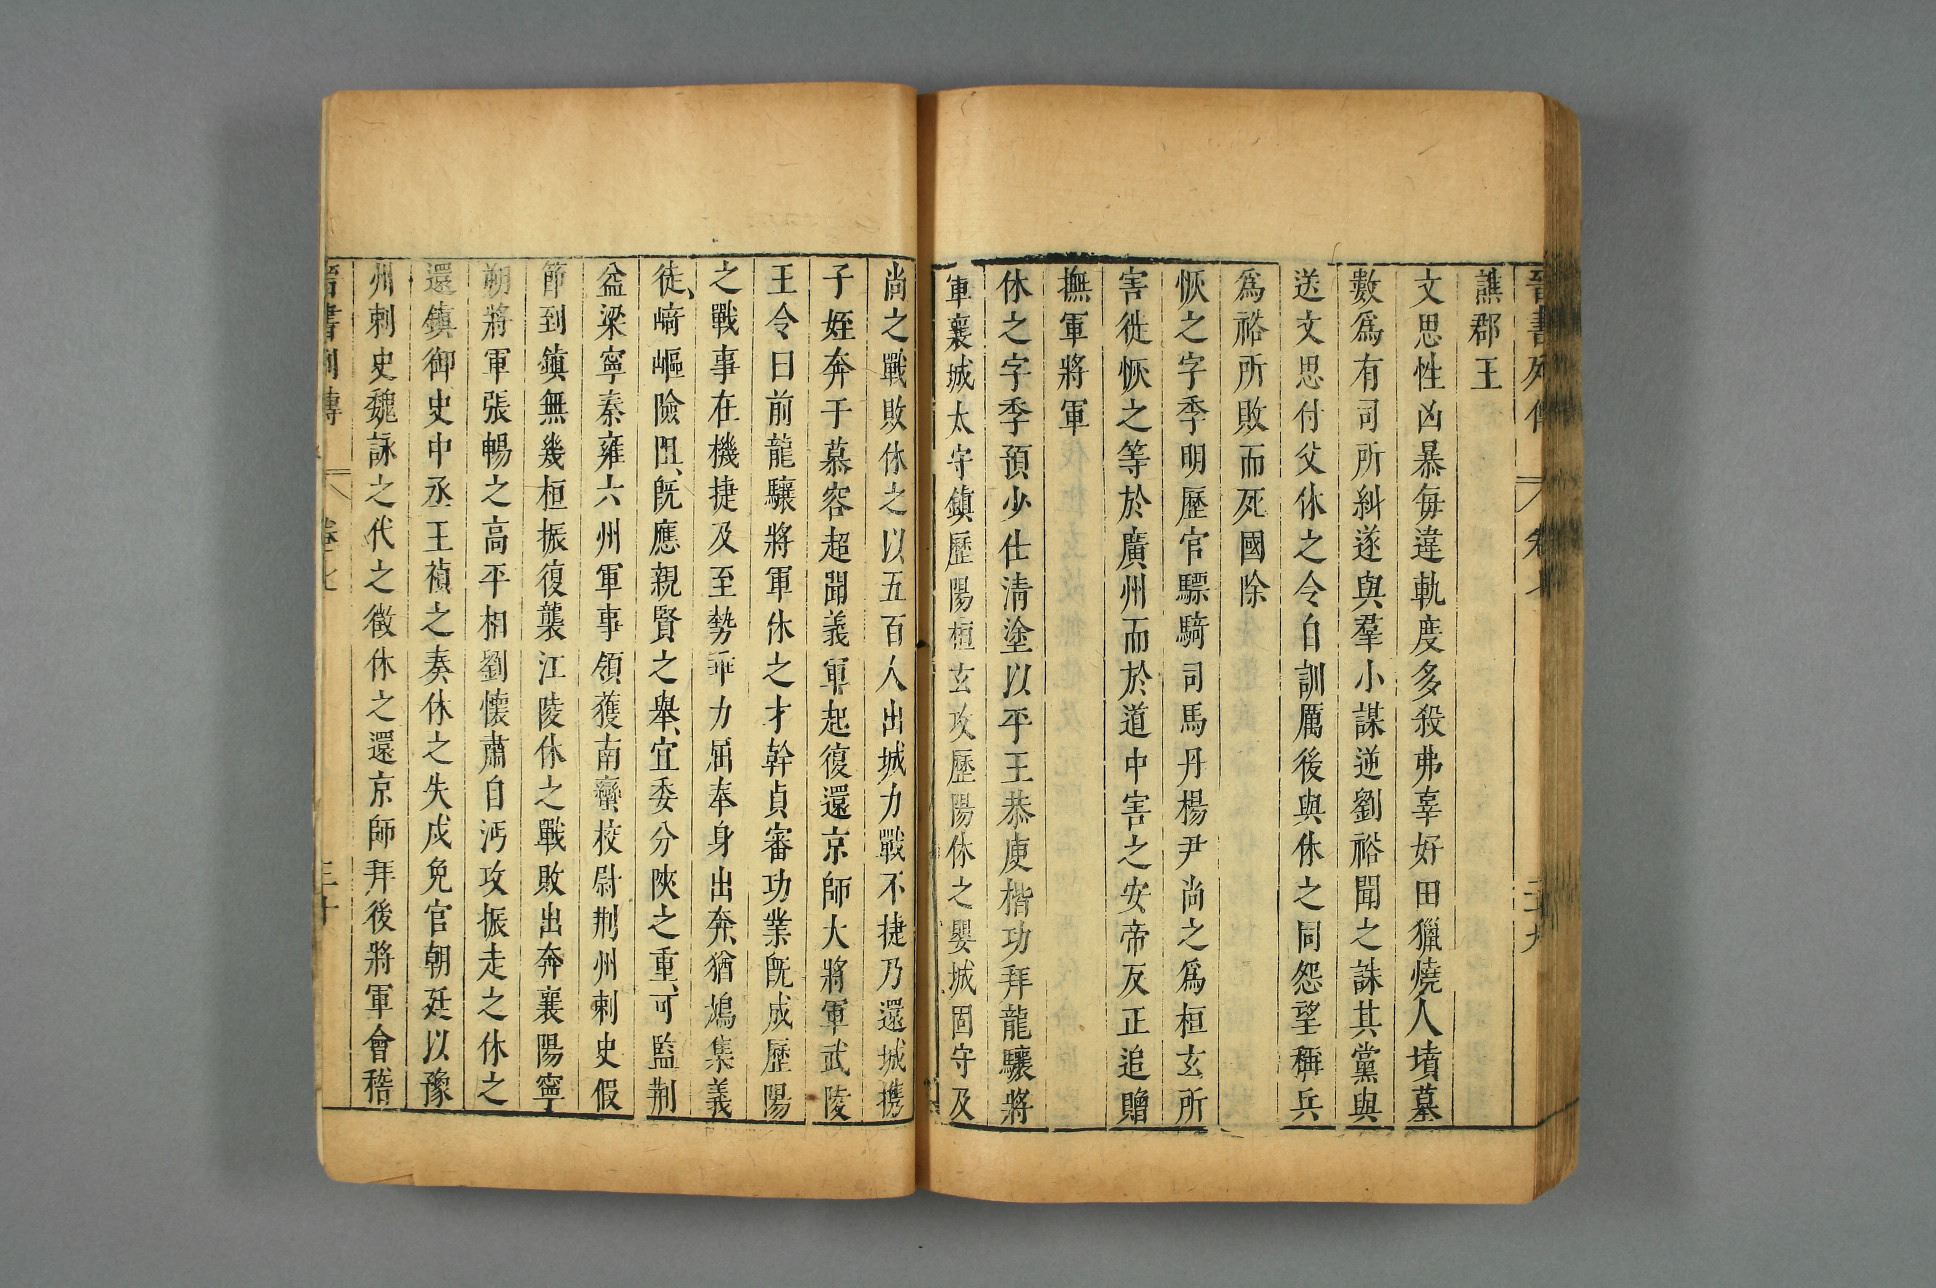 晉書列傳 卷七 二十九
譙郡王
文思性凶暴每違軌度多殺弗辜好田獵燒人墳墓
數爲有司所糾遂與羣小謀逆劉裕聞之誅其黨與
送文思付父休之令自訓厲後與休之同怨望稱兵
爲裕所敗而死國除
恢之字季明歷官驃騎司馬丹楊尹尚之爲桓玄所
害徙恢之等於廣州而於道中害之安帝反正追贈
撫軍將軍
休之字季預少仕清塗以平王恭庾楷功拜龍驤將
軍襄城太守鎮歷陽桓玄攻歷陽休之嬰城固守及
尚之戰敗休之以五百人出城力戰不捷乃還城攜
子姪奔于慕容超聞義軍起復還京師大將軍武陵
王令曰前龍驤將軍休之才幹貞審功業旣成歷陽
之戰事在機捷及至勢乖力屈奉身出奔、猶鳩集義
徒、崎嶇險阻、旣應親賢之舉、宜委分陝之重、可監荆
益梁寧秦雍六州軍事領護南蠻校尉荆州刺史假
節到鎮無幾桓振復襲江陵休之戰敗出奔襄陽寧
朔將軍張暢之高平相劉懷肅自沔攻振走之休之
還鎮御史中丞王禎之奏休之失戍免官朝廷以豫
州刺史魏詠之代之徵休之還京師拜後將軍會稽
晉書列傳 卷七 三十